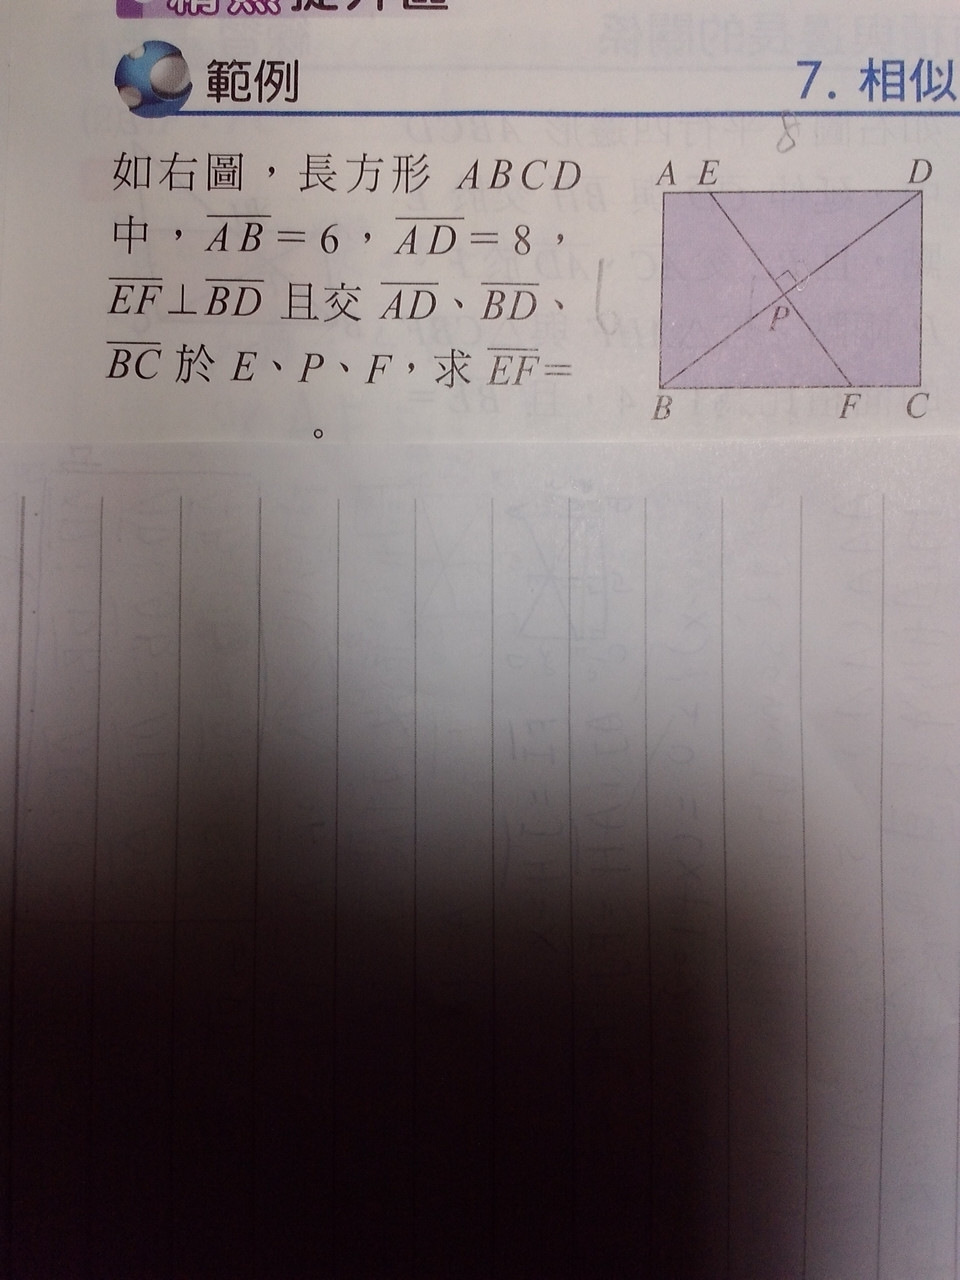 精熟提升區
範例
7. 相似
如右圖，長方形 ABCD
中，AB＝6，AD＝8，
EF⊥BD 且交 AD、BD、
BC 於 E、P、F，求 EF＝
。
8
A E D
P
B F C